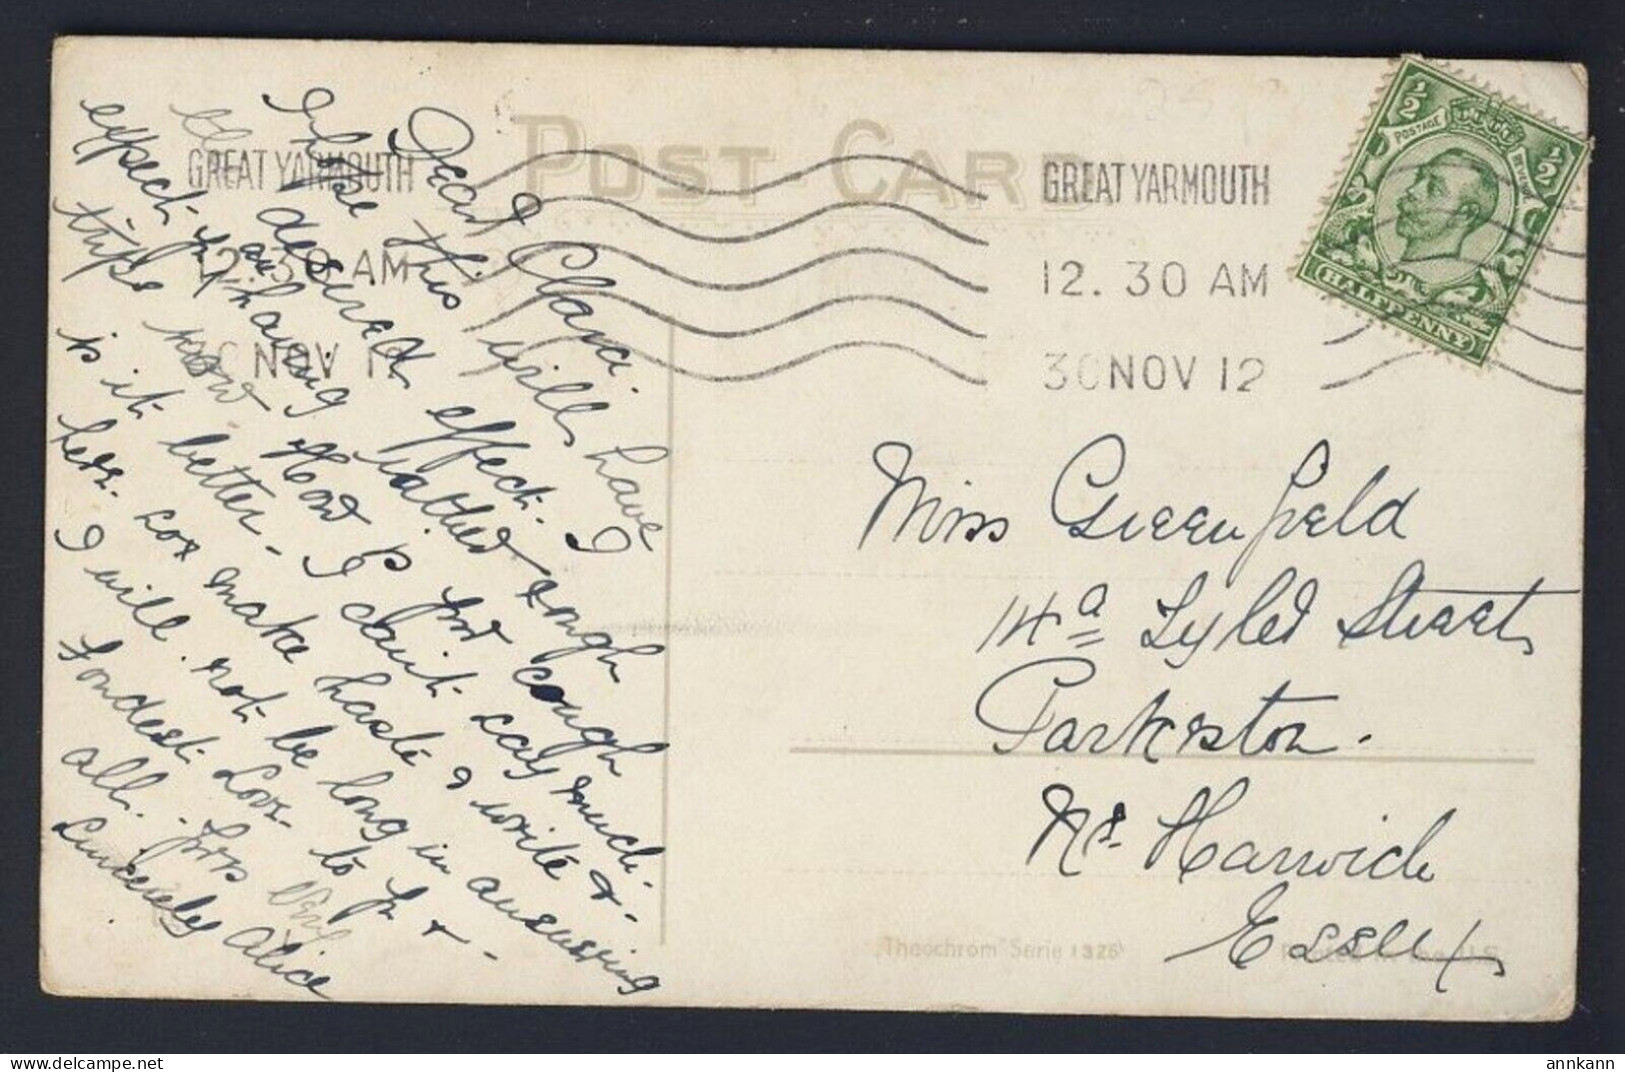 POST CARD.
GREAT YARMOUTH
12.30 AM
30 NOV 12
GREAT YARMOUTH
12.30 AM
30 NOV 12
½ ½
POSTAGE REVENUE
HALFPENNY
Dear Clara.
I hope this will have
desired effect. I
expect you are having rather rough
type now. How is your cough
is it better - I can't say much.
here. xox make haste & write & -
I will not be long in answering
Fondest Love to you & -
all. - Yrs Very
Sincerely Alice
Miss Greenfield
14a Tyler Street
Parkeston.
Nr. Harwich
Essex
"Theochrom" Serie 1326
Printed in the U.S.
annkann